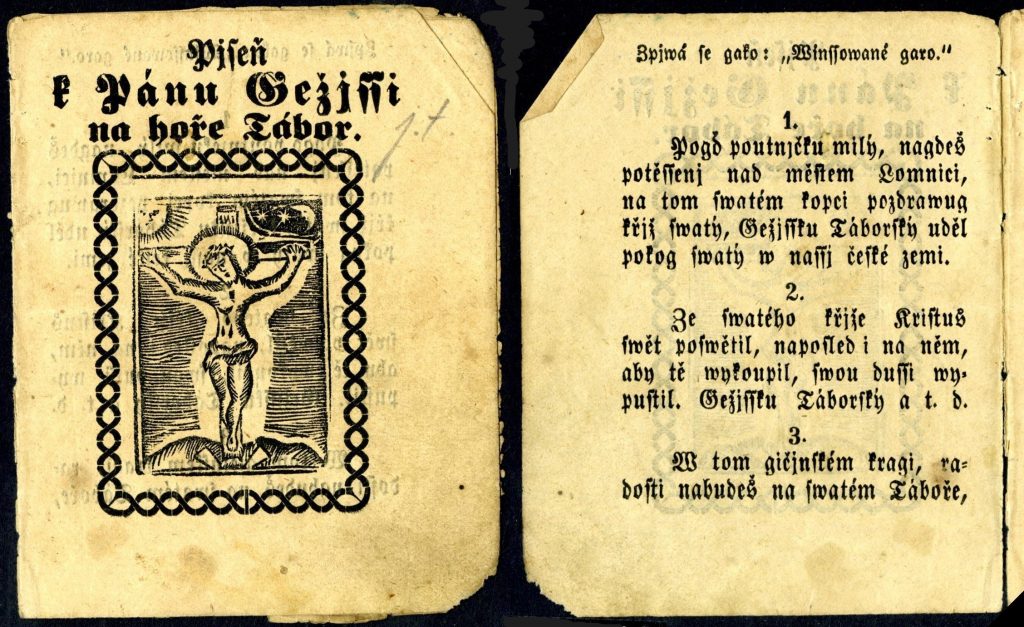 Pjseň
k Pánu Gežjssi
na hoře Tábor.
INRI
j. t
Zpjwá se gako: „Winssowané garo.“
1.
Pogď poutnjčku milý, nagdeš
potěssenj nad městem Lomnici,
na tom swatém kopci pozdrawug
křjž swatý, Gežjssku Táborský uděl
pokog swatý w nassj české zemi.
2.
Ze swatého křjže Kristus
swět poswětil, naposled i na něm,
aby tě wykoupil, swou dussi wy-
pustil. Gežjssku Táborský a t. d.
3.
W tom gičjnském kragi, ra-
dosti nabudeš na swatém Táboře,